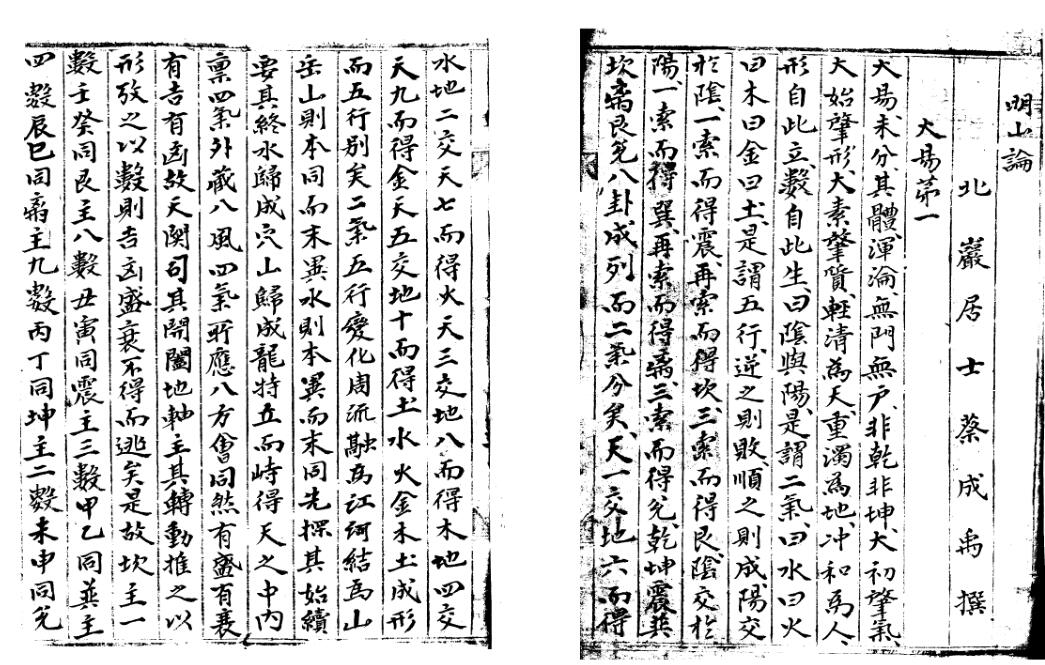 明山論
北巖居士蔡成禹撰
大易苐一
大易未分其體渾淪無門無户非乾非坤大初肇氣
大始肇形大素肇質輕清為天重濁為地冲和為人
形自此立數自此生曰陰與陽是謂二氣曰水曰火
曰木曰金曰土是謂五行逆之則敗順之則成陽交
於陰一索而得震再索而得坎三索而得艮陰交於
陽一索而得巽再索而得离三索而得兊乾坤震巽
坎离艮兊八卦成列而二氣分矣天一交地六而得
水地二交天七而得火天三交地八而得木地四交
天九而得金天五交地十而得土水火金木土成形
而五行别矣二氣五行變化周流融為江河結為山
岳山則本同而末異水則本異而末同先探其始續
要其終水歸成穴山歸成龍特立而峙得天之中内
禀四氣外藏八風四氣所應八方會同然有盛有衰
有吉有凶故天関司其開闔地軸主其轉動推之以
形攷之以數則吉凶盛衰不得而逃矣是故坎主一
數壬癸同艮主八數丑寅同震主三數甲乙同巽主
四數辰巳同离主九數丙丁同坤主二數未申同兊